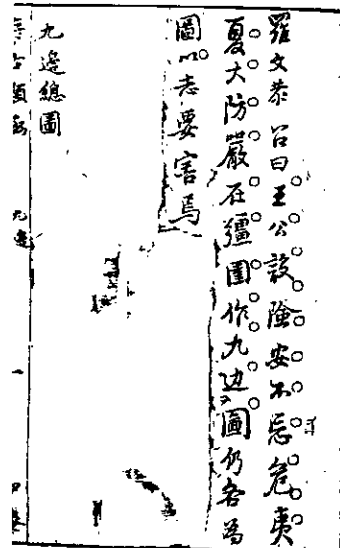 羅文恭曰王公設險安不忘危夷
夏大防嚴在疆圉作九边圖仍各為
圖以志要害焉
九邊總圖
九邊 一